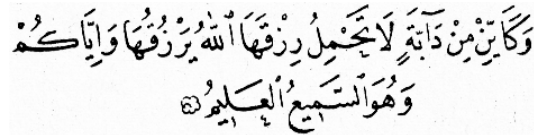 وَكَأَيِّنْ مِنْ دَآبَّةٍ لَا تَحْمِلُ رِزْقَهَا اللّٰهُ يَرْزُقُهَا وَإِيَّاكُمْ
وَهُوَ السَّمِيعُ الْعَلِيمُ